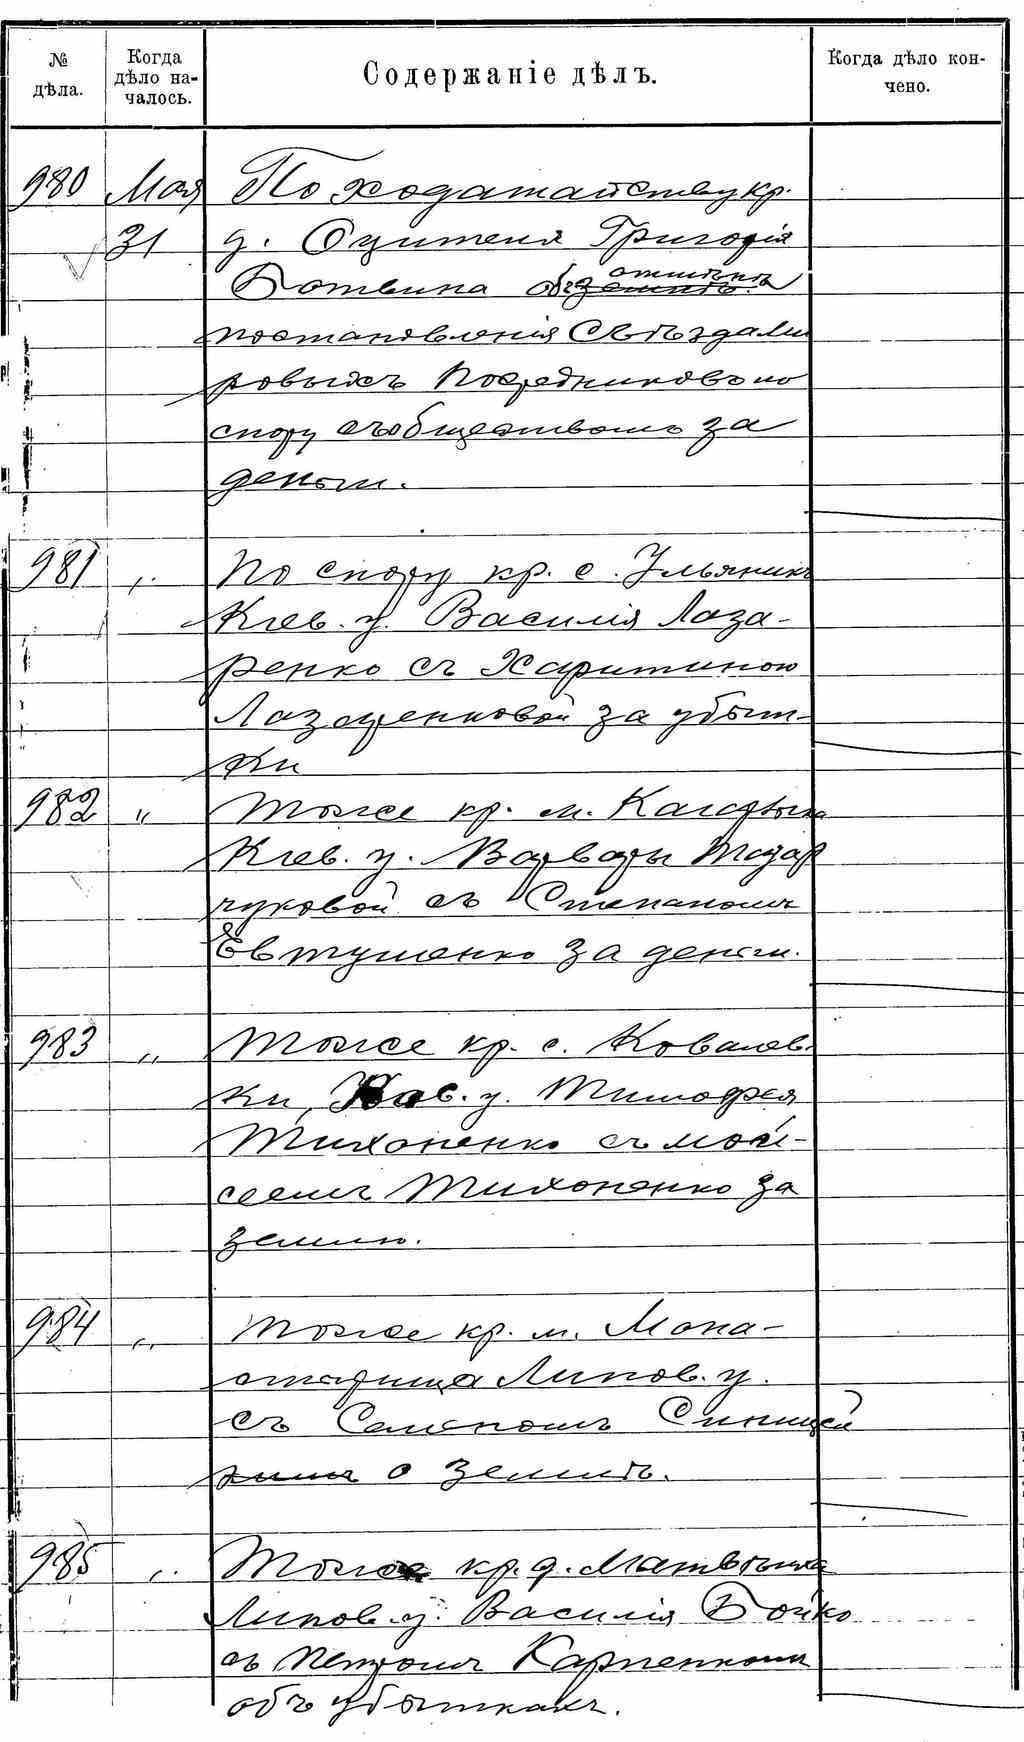 № дѣла.
Когда дѣло на-
чалось.
Содержаніе дѣлъ.
Когда дѣло кон-
чено.
980 Мая По ходатайству кр.
31 д. Оцителя Григорія
отмѣнѣ
Ботвина объ
постановленія Съѣзда Ми
ровыхъ Посредниковъ по
спору съ обществомъ за
деньги.
981 „ По спору кр. с. Ульяник
Кіев. у. Василія Лаза-
ренко съ Харитиною
Лазаренковой за убыт-
ки
982 „ Тоже кр. м. Кагарлыка
Кіев. у. Варвары Токар
чуковой съ Степаномъ
Евтушенко за деньги.
983 „ Тоже кр. с. Ковалев-
ки, Вас. у. Тимофея
Тихоненко съ Мои-
сеемъ Тихоненко за
землю.
984 „ Тоже кр. м. Мона-
стырища Липов. у.
съ Семеномъ Синицей
о землѣ.
985 „ Тоже кр. д. Матвѣихи
Липов. у. Василія Бойко
съ Петромъ Карпенкомъ
объ убыткахъ.